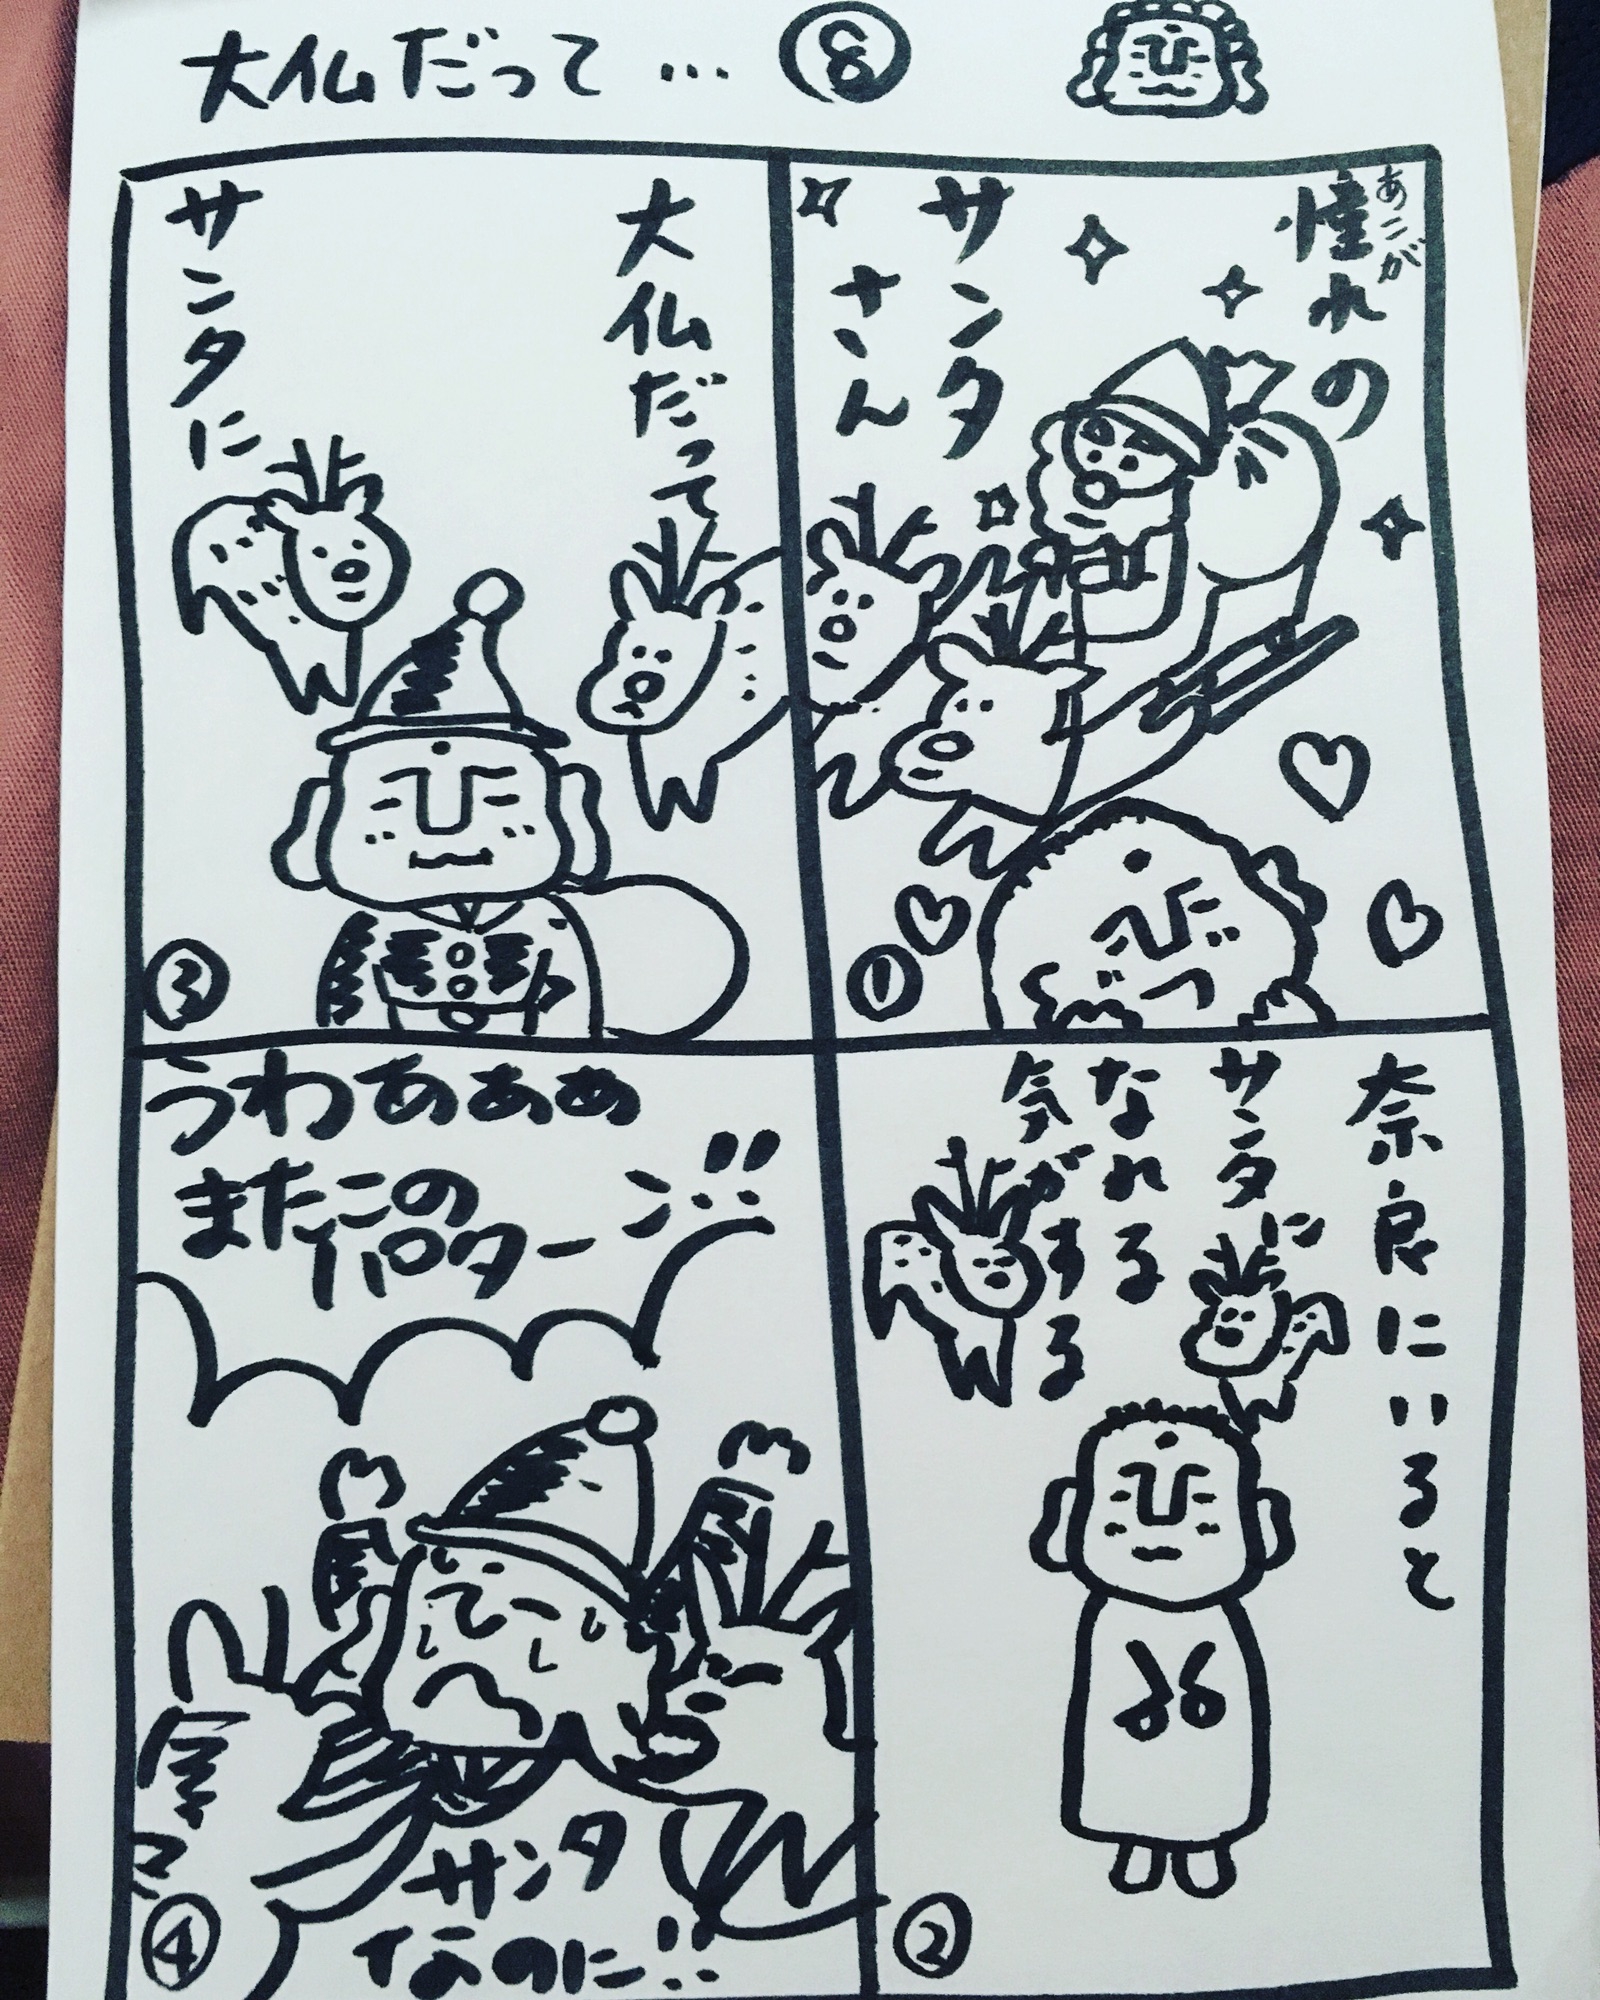 大仏だって… ⑧
憧れの
あこが
サンタ
さん
①
奈良にいると
サンタに
なれる
気がする
②
大仏だって
サンタに
③
うわあぁぁ
またこの
パターン!!
サンタ
なのに!!
④